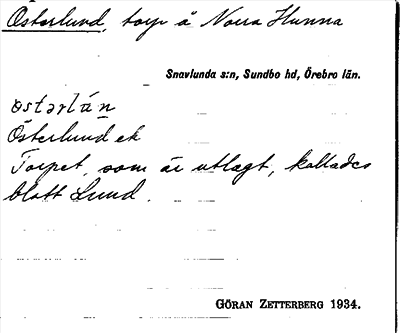 Österlund, torp å Norra Hunna
Snavlunda s:n, Sundbo hd, Örebro län.
østərlún
Österlund ek
Torpet, som är utlagt, kallades
blott Lund.
GÖRAN ZETTERBERG 1934.